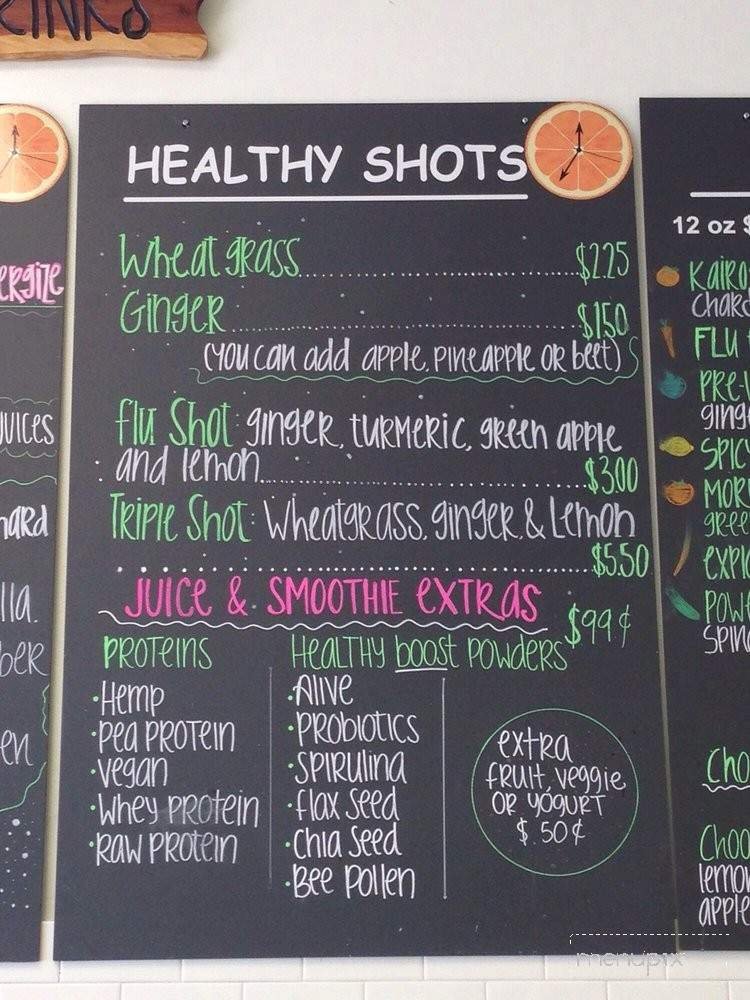 HEALTHY SHOTS
Wheat grass..............................$2.25
Ginger..............................$1.50
(you can add apple, pineapple or beet)
Flu Shot: ginger, turmeric, green apple
and lemon..............................$3.00
Triple Shot: Wheatgrass, ginger, & Lemon
..............................$5.50
JUICE & SMOOTHIE EXTRAS
$99¢
PROTEINS
• Hemp
• Pea PROTEIN
• vegan
• Whey PROTEIN
• RAW PROTEIN
HEALTHY boost POWDERS
• Alive
• PROBIOTICS
• SPIRULINA
• flax seed
• Chia Seed
• Bee Pollen
extra
fruit, veggie
OR YOGURT
$.50¢
ergize
hard
12 oz $
FLU
SPICY
Choo
lemon
apple
menupix